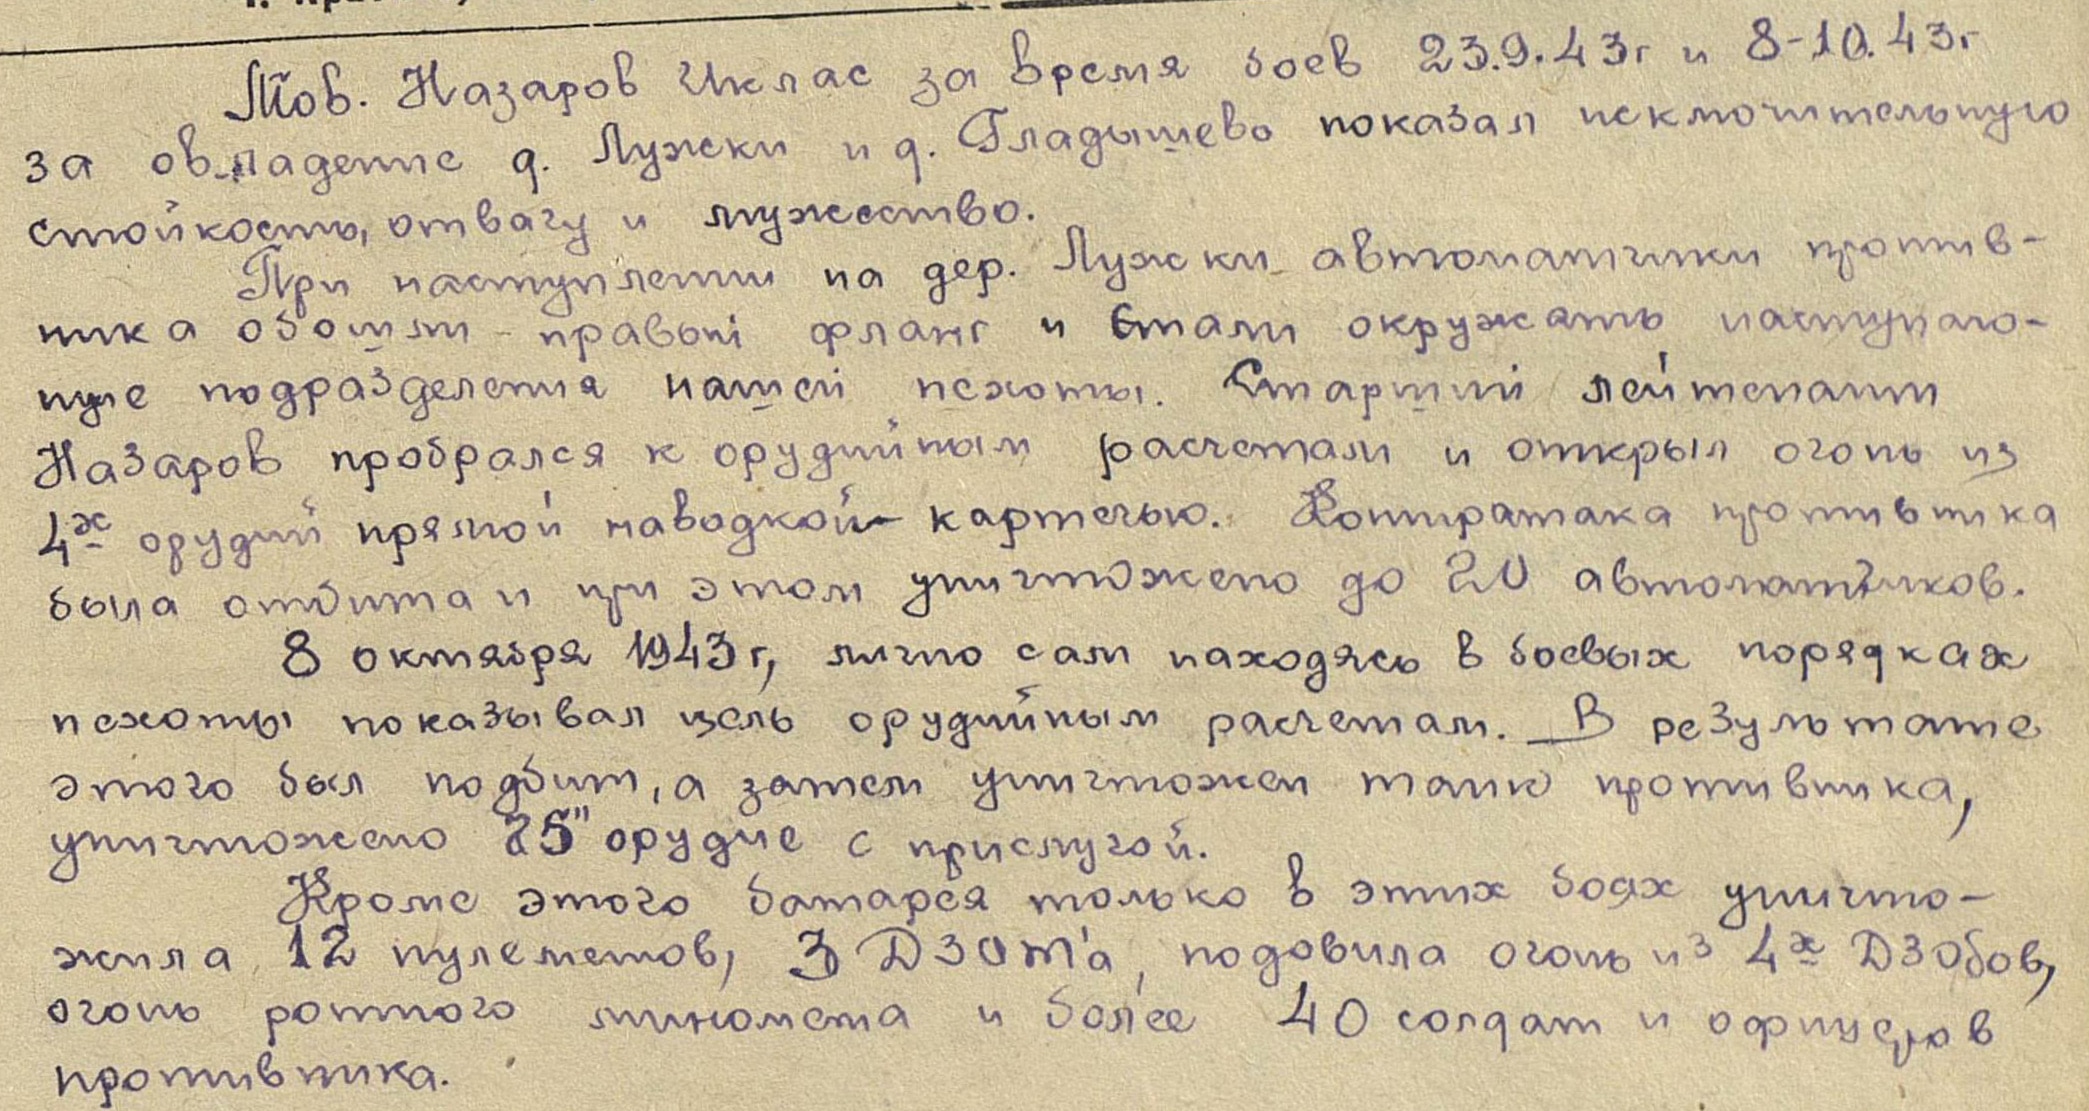 Тов. Назаров Иклас за время боев 23.9.43г и 8-10.43г
за овладение д. Лужски и д. Гладышево показал исключительную
стойкость, отвагу и мужество.
При наступлении на дер. Лужски автоматчики против-
ника обошли правый фланг и стали окружать наступаю-
щие подразделения нашей пехоты. Старший лейтенант
Назаров пробрался к орудийным расчетам и открыл огонь из
4х орудий прямой наводкой - картечью. Контратака противника
была отбита и при этом уничтожено до 20 автоматчиков.
8 октября 1943г, лично сам находясь в боевых порядках
пехоты показывал цель орудийным расчетам. В результате
этого был подбит, а затем уничтожен танк противника,
уничтожено 75" орудие с прислугой.
Кроме этого батарея только в этих боях уничто-
жила 12 пулеметов, 3 ДЗОТ'а, подовила огонь из 4х ДЗОтов,
огонь ротного миномета и более 40 солдат и офицеров
противника.